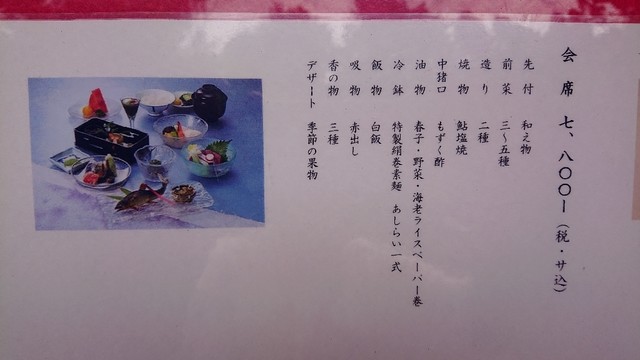 会席 七、八〇〇ー（税・サ込）
先付 和え物
前菜 三〜五種
造り 二種
焼物 鮎塩焼
中猪口 もずく酢
油物 春子・野菜・海老ライスペーパー巻
冷鉢 特製絹巻素麺 あしらい一式
飯物 白飯
吸物 赤出し
香の物 三種
デザート 季節の果物